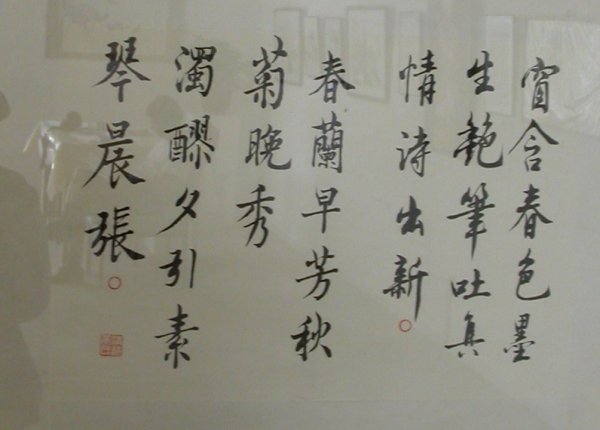 窗含春色墨
生艳筆吐真
情诗出新
春蘭早芳秋
菊晚秀
濁醪夕引素
琴晨張